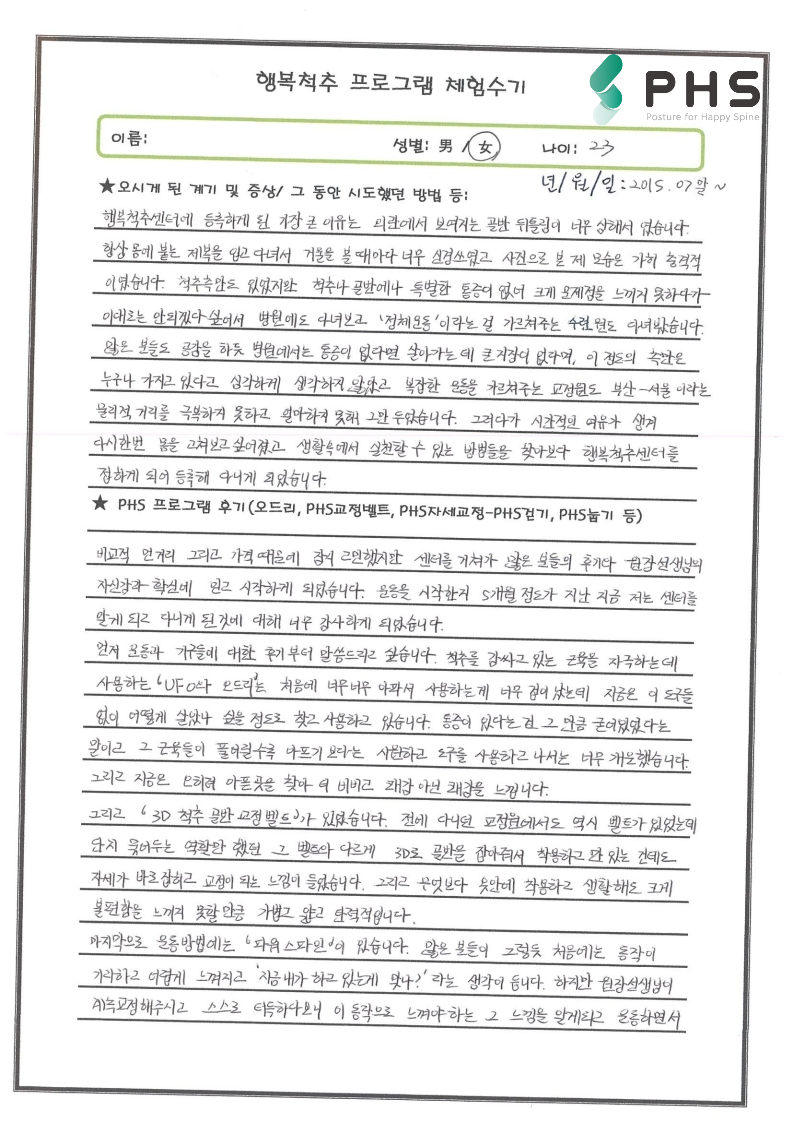 행복척추 프로그램 체험수기
PHS
Posture for Happy Spine
이름: 성별: 男 / 女 나이: 23
년/월/일: 2015. 07말 ~
★오시게 된 계기 및 증상/ 그 동안 시도했던 방법 등:
행복척추센터에 등록하게 된 가장 큰 이유는 외관에서 보여지는 골반 뒤틀림이 너무 심해서 였습니다.
항상 몸에 붙는 제복을 입고 다녀서 거울을 볼 때마다 너무 신경쓰였고 사진으로 본 제 모습은 가히 충격적
이였습니다. 척추측만도 있었지만 척추나 골반에나 특별한 통증이 없어 크게 문제점을 느끼지 못하다가
이대로는 안되겠다 싶어서 병원에도 다녀보고 '정체운동'이라는 걸 가르쳐주는 수련원도 다녀봤습니다.
많은 분들도 공감을 하듯 병원에서는 통증이 없다면 살아가는 데 큰 지장이 없다며, 이 정도의 측만은
누구나 가지고 있다고 심각하게 생각하지 않았고 복잡한 운동을 가르쳐주는 교정원도 부산-서울 이라는
물리적 거리를 극복하지 못하고 얼마하지 못해 그만 두었습니다. 그러다가 시간적인 여유가 생겨
다시한번 몸을 고쳐보고 싶어졌고 생활속에서 실천할 수 있는 방법들을 찾아보다 행복척추센터를
접하게 되어 등록해 다니게 되었습니다.
★ PHS 프로그램 후기(오드리, PHS교정벨트, PHS자세교정-PHS걷기, PHS눕기 등)
비교적 먼거리 그리고 가격 때문에 잠시 고민했지만 센터를 거쳐가 많은 분들의 후기와 원장선생님의
자신감과 확신에 믿고 시작하게 되었습니다. 운동을 시작한지 5개월 정도가 지난 지금 저는 센터를
알게 되고 다니게 된것에 대해 너무 감사하게 되었습니다.
먼저 운동과 기구들에 대한 후기부터 말씀드리고 싶습니다. 척추를 감싸고 있는 근육을 자극하는데
사용하는 'UFO와 오드리'는 처음에 너무너무 아파서 사용하는게 너무 겁이 났는데 지금은 이 도구들
없이 어떻게 살았나 싶을 정도로 찾고 사용하고 있습니다. 통증이 있다는건 그 만큼 굳어있었다는
말이고 그 근육들이 풀어질수록 아프기 보다는 시원하고 도구를 사용하고 나서는 너무 개운했습니다.
그리고 지금은 오히려 아픈곳을 찾아 더 비비고 쾌감 아닌 쾌감을 느낍니다.
그리고 '3D 척추 골반 교정 벨트'가 있었습니다. 전에 다니던 교정원에서도 역시 벨트가 있었는데
단지 묶어두는 역할만 했던 그 벨트와 다르게 3D로 골반을 잡아줘서 착용하고만 있는 건데도
자세가 바로 잡히고 교정이 되는 느낌이 들었습니다. 그리고 무엇보다 옷안에 착용하고 생활해도 크게
불편함을 느끼지 못할 만큼 가볍고 얇고 탄력적입니다.
마지막으로 운동방법에는 '파워스파인'이 있습니다. 많은 분들이 그렇듯 처음에는 동작이
가각하고 어렵게 느껴지고 '지금 내가 하고 있는게 맞나?' 라는 생각이 듭니다. 하지만 원장선생님이
계속 교정해주시고 스스로 터득하다보니 이 동작으로 느껴야 하는 그 느낌을 알게되고 운동하면서